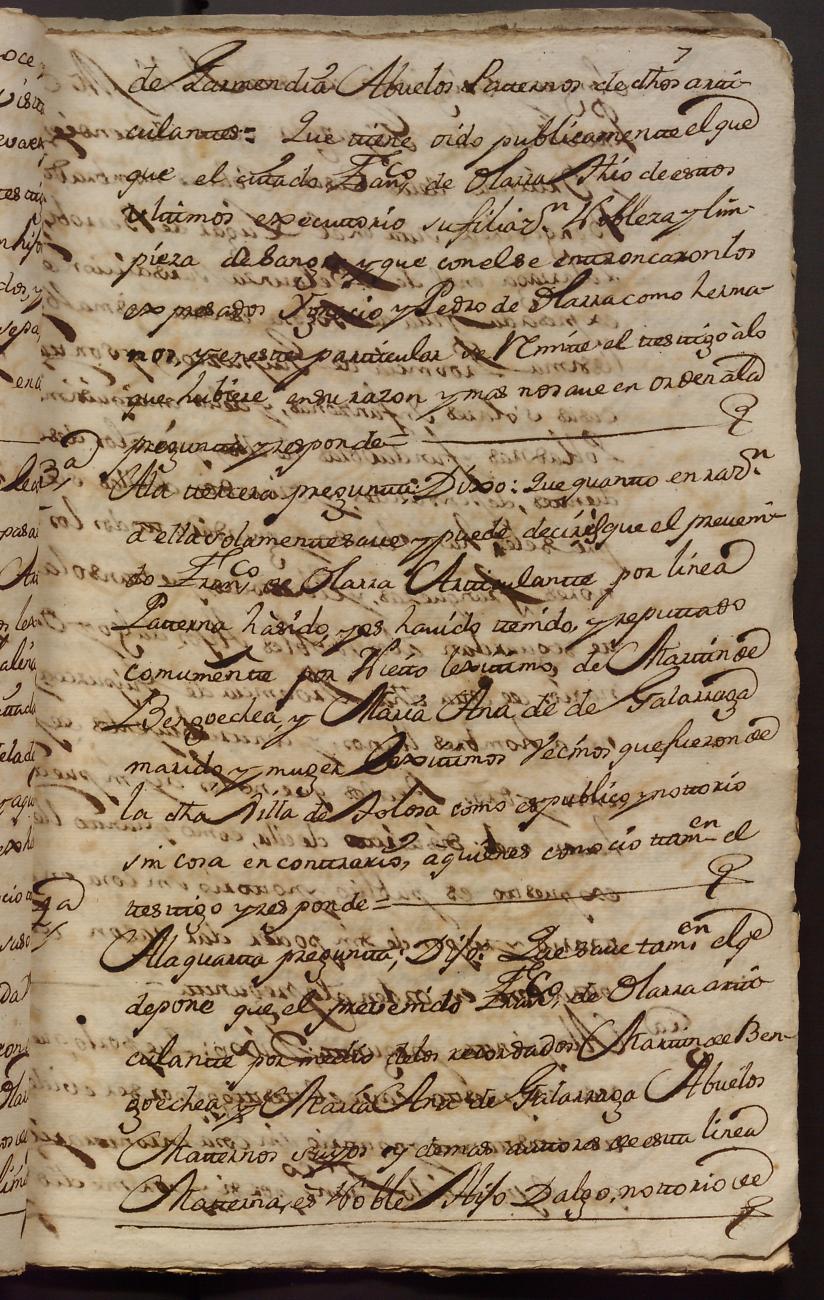 7
de Garmendia Abuelos Patternos de dhos arti-
culantes: Que tiene oido publicamente el que
que el citado Franco de Olarra Hijo de estos
vltimos executorio su filiazn Nobleza y lim-
pieza de Sangre y que con el se entroncaron los
expresados Ygnacio y Pedro de Olarra como herma-
nos, y en este particular se Remite el testigo à lo
que hubiere en su razon y mas no save en orden a la
pregunta y responde=
3a
A la tercera pregunta: Dixo: Que quanto en razon
a ella solamente save y puede decir es que el preveni-
do Franco de Olarra Articulante por linea
Patterna hà sido, y es havido tenido, y reputtado
comunmente por Nietto lexitimo, de Martin de
Bengoechea, y Maria Ana de de Galarraga
marido y muger Lexitimos Vecinos que fueron de
la dha Villa de Tolosa como es publico y nottorio
sin cosa en contrario, a quienes conocio tamen el
testigo y responde=
4a
A la quarta pregunta; Dijo: Que save tamien el qe
depone que el prevenido Franco de Olarra arti-
culante por medio de los recordados Martin de Ben-
goechea, y Maria Ana de Galarraga Abuelos
Matternos suyos y demas auttores de esta linea
Matterna, es Noble Hijo Dalgo, nottorio de